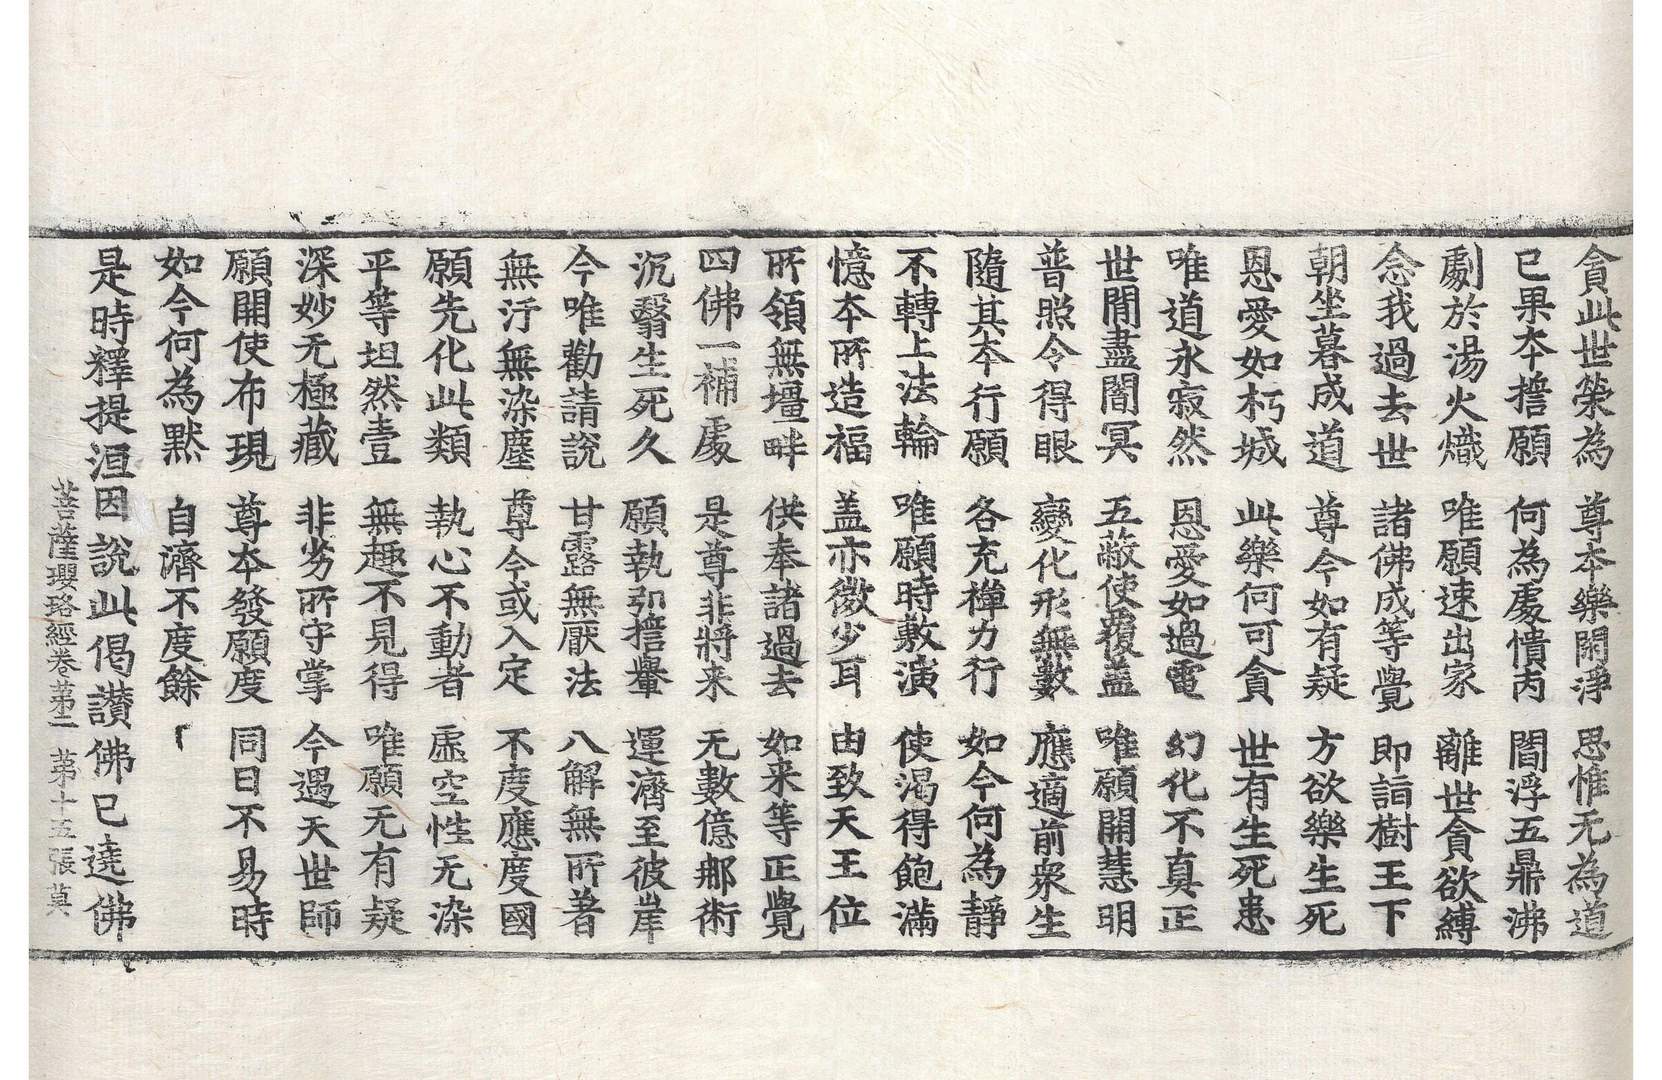 貪此世榮為 尊本樂閑淨 思惟无為道
已果本擔願 何為處憒丙 閻浮五鼎沸
劇於湯火熾 唯願速出家 離世貪欲縛
念我過去世 諸佛成等覺 即詣樹王下
朝坐暮成道 尊今如有疑 方欲樂生死
恩愛如朽城 此樂何可貪 世有生死患
唯道永寂然 恩愛如過電 幻化不真正
世間盡闇冥 五蔽使覆盖 唯願開慧明
普照令得眼 變化形無數 應適前眾生
隨其本行願 各充禪力行 如今何為靜
不轉上法輪 唯願時敷演 使渴得飽滿
憶本所造福 盖亦微少耳 由致天王位
所領無壃畔 供奉諸過去 如来等正覺
四佛一補處 是尊非將来 无數億那術
沉翳生死久 願執弘擔轝 運濟至彼岸
今唯勸請說 甘露無厭法 八解無所著
無汙無染塵 尊今或入定 不度應度國
願先化此類 執心不動者 虛空性无染
平等坦然壹 無趣不見得 唯願无有疑
深妙无極藏 非劣所守掌 今遇天世師
願開使布現 尊本發願度 同日不易時
如今何為默 自濟不度餘
是時釋提洹因說此偈讃佛已遶佛
菩薩瓔珞經卷苐二 苐十五張 莫